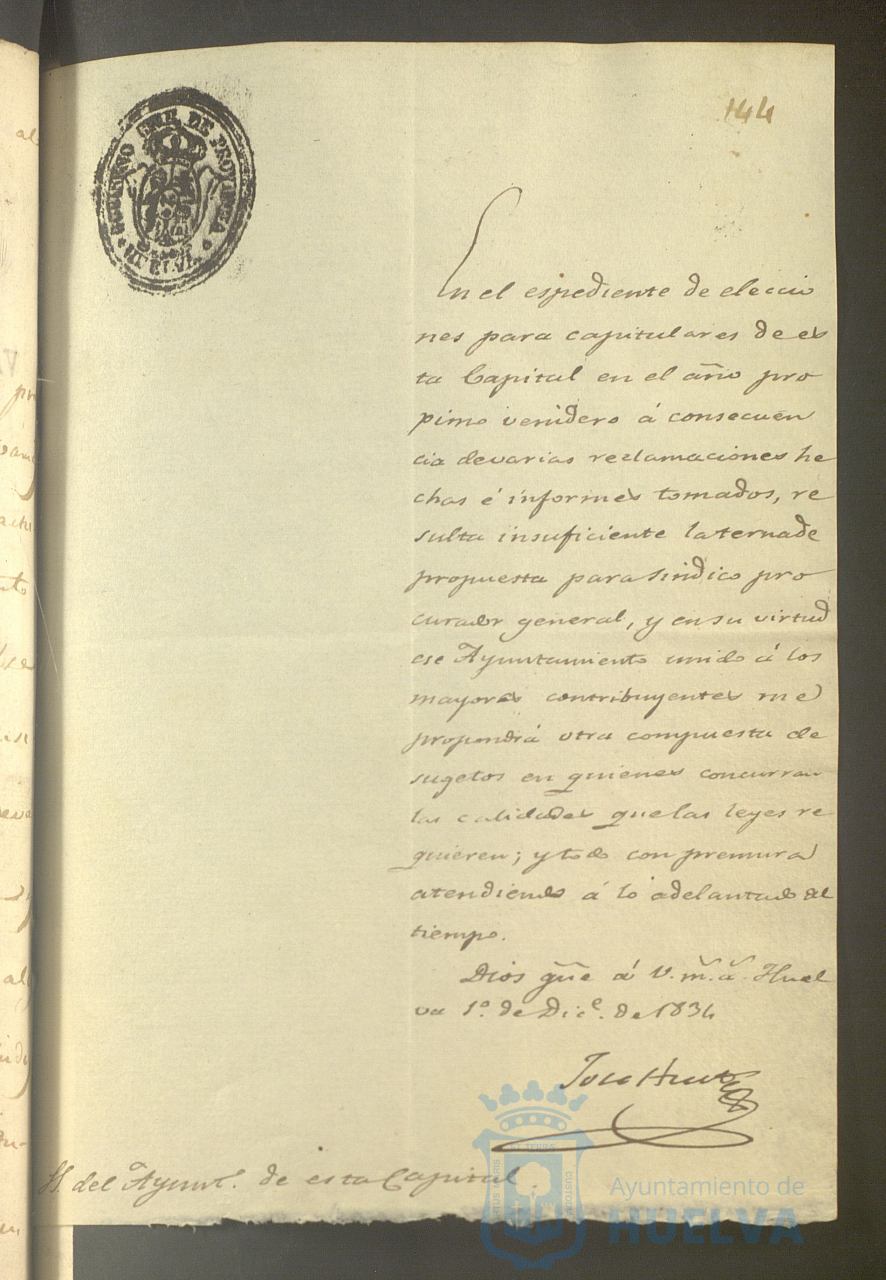 144
GOBIERNO CIVIL DE PROVINCIA
HUELVA
En el espediente de eleccio
nes para capitulares de es
ta Capital en el año pro
pimo venidero á consecuen
cia de varias reclamaciones he
chas é informes tomados, re
sulta insuficiente la terna de
propuesta para Sindico pro
curador general, y en su virtud
ese Ayuntamiento unido á los
mayores contribuyentes me
propondrá otra compuesta de
sugetos en quienes concurran
las calidades que las leyes re
quieren; y todo con premura
atendiendo á lo adelantado del
tiempo.
Dios gũe á V. m.s a.s Huel
va 1º. de Dice. de 1834
Jose Huet
SS. del Ayunto. de esta Capital.
Ayuntamiento de
HUELVA